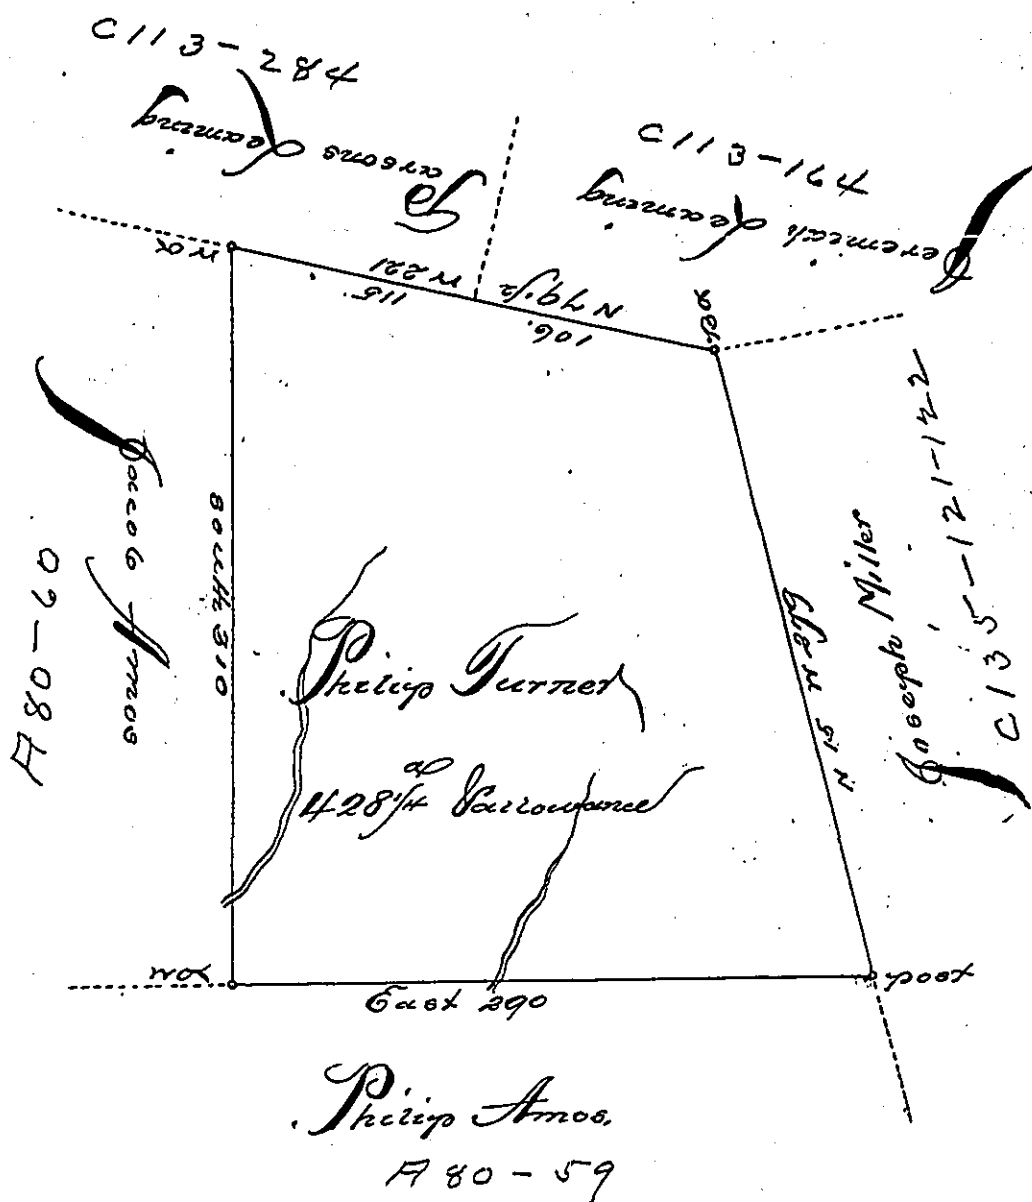 C113-284
Parsons Leaming
C113-164
Jeremiah Leaming
W O
W 221
115.
N 79 1/2
106.
R O
A80-60
Jacob Amos
South 310
Philip Turner
428 1/4 a & allowance
N 15 W
Joseph Miller
C135-121-122
W O
East 290
post
Philip Amos.
A80-59